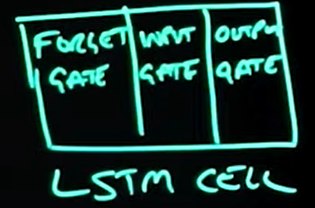 FORGET GATE
INPUT GATE
OUTPUT GATE
LSTM CELL